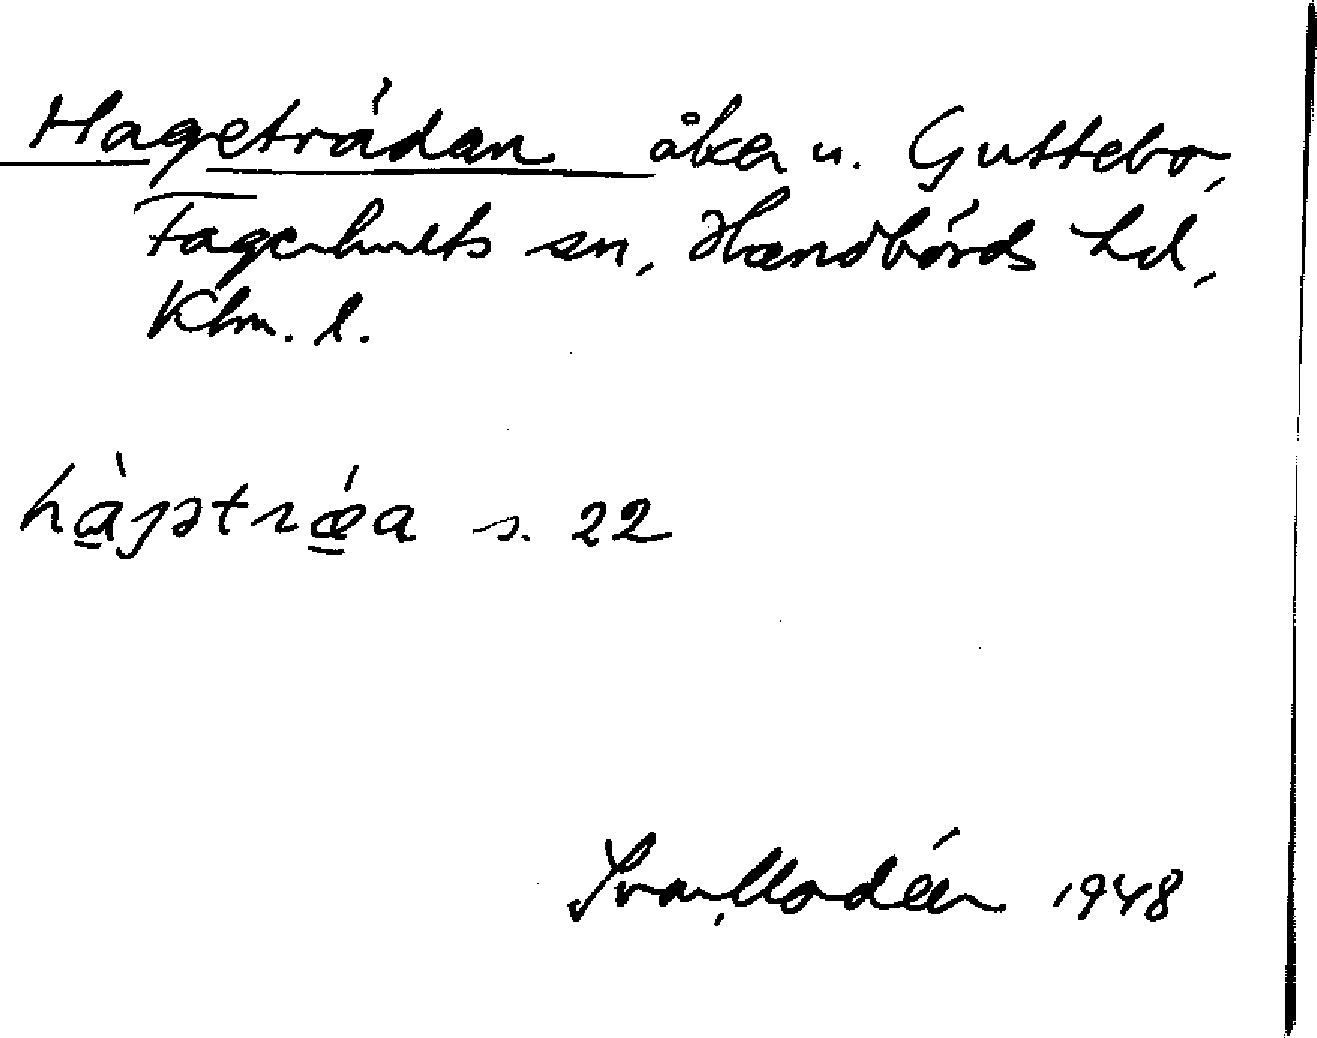 Hageträdan åker u. Guttebo,
Fagerhults sn, Handbörds hd,
Klm. l.
hàgətræ̀a s. 22
Ivar Modéer 1948